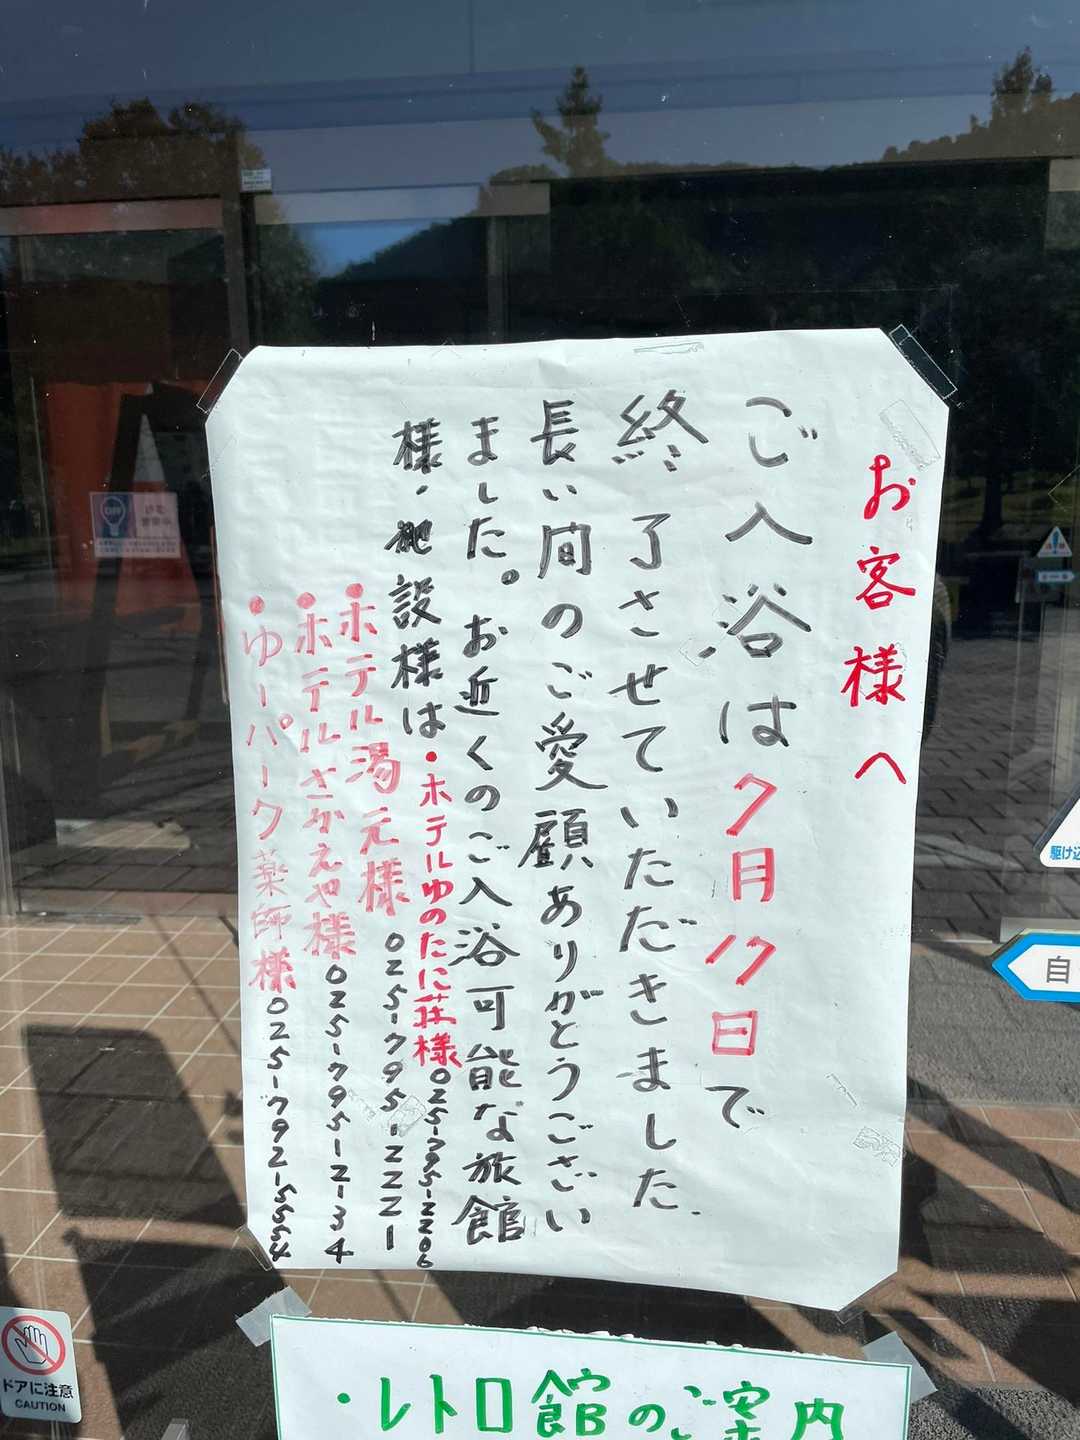 お客様へ
ご入浴は7月17日で
終了させていただきました.
長い間のご愛顧ありがとうござい
ました。お近くのご入浴可能な旅館
様・施設様は
・ホテルゆのたに荘様 025-795-2206
・ホテル湯元様 025-795-2221
・ホテルさかえや様 025-795-2-34
・ゆーパーク薬師様 025-792-5554
・レトロ館のご案内
ドアに注意
CAUTION
駆け込
自